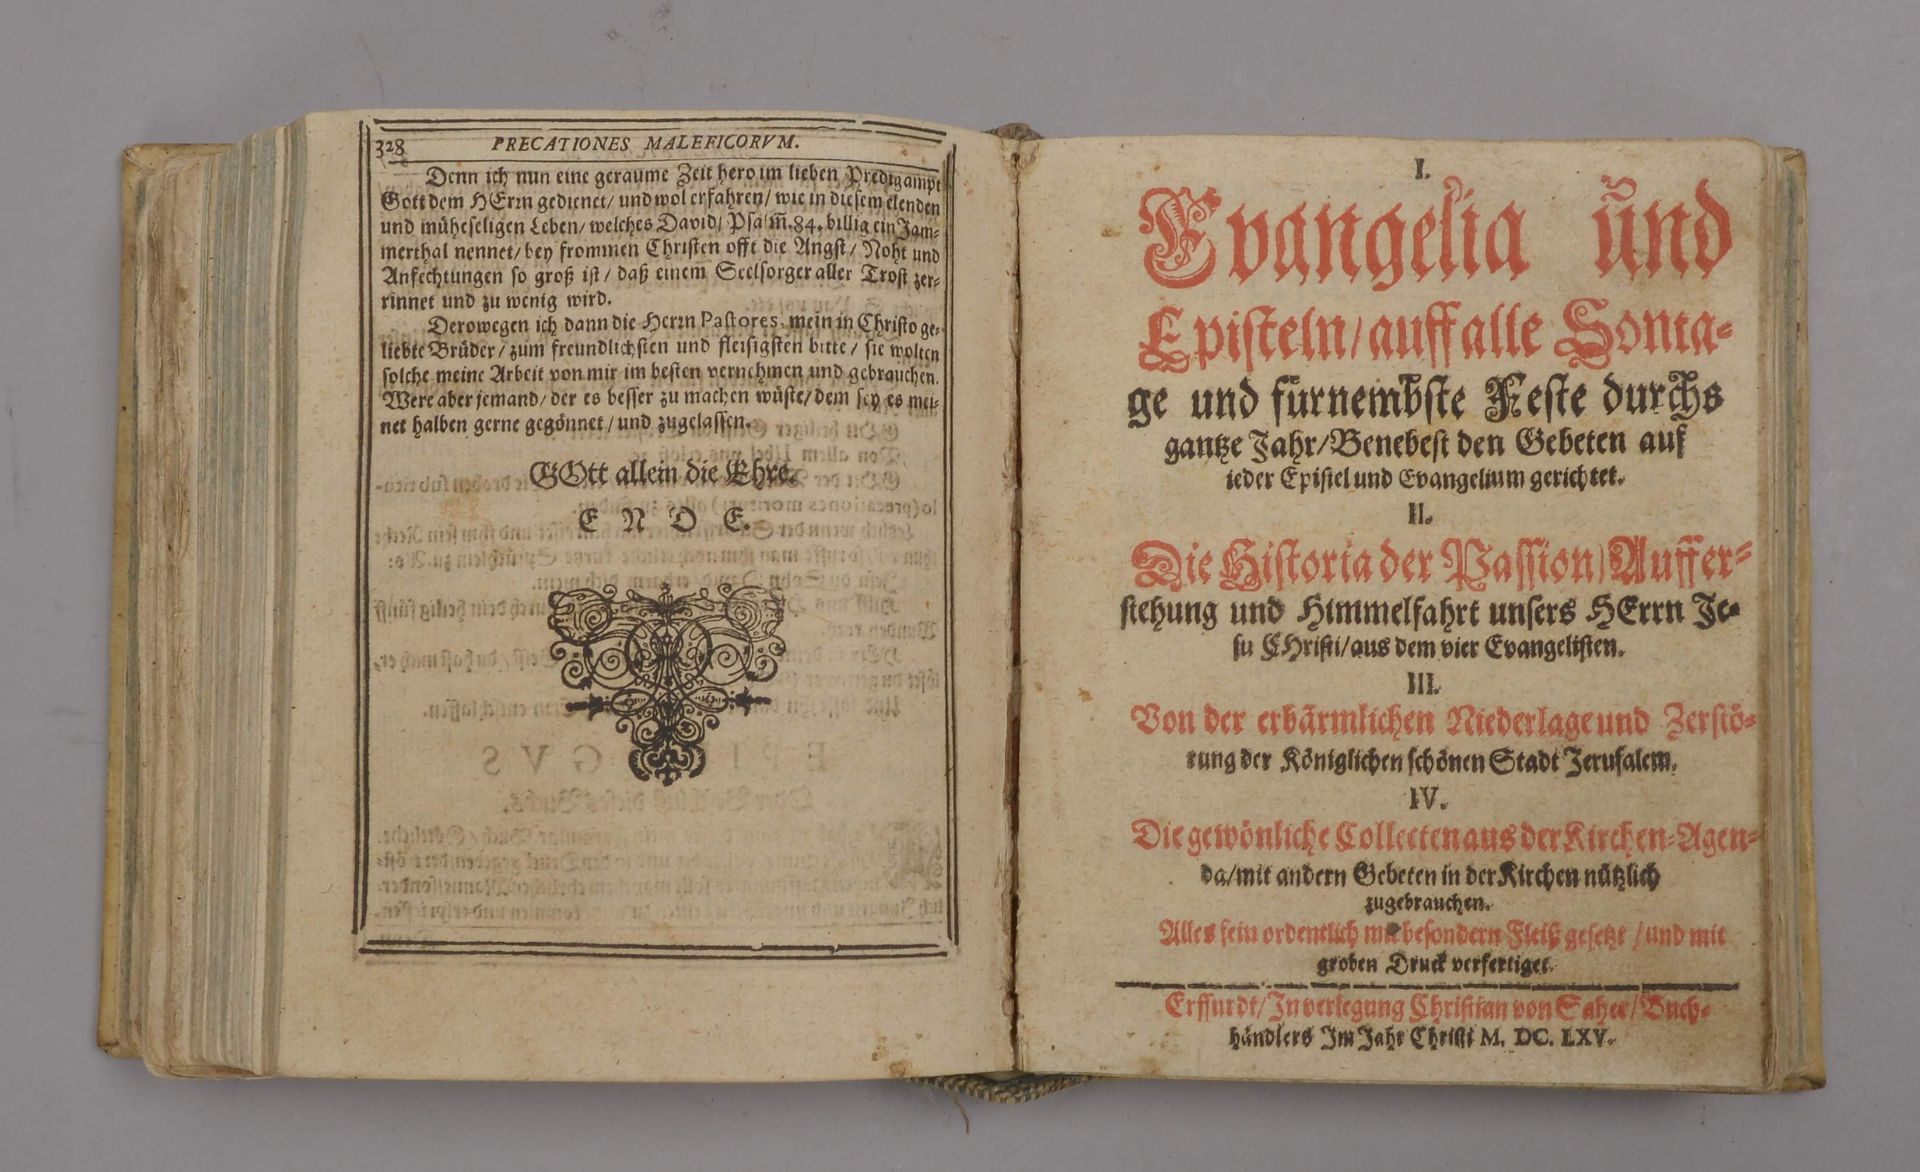 328 PRECATIONES MALEFICORVM.
Denn ich nun eine geraume Zeit hero im lieben Predigampt
Gott dem HErrn gedienet/ und wol erfahren/ wie in diesem elenden
und müheseligen Leben/ welches David/ Psalm. 84. billig ein Jam-
merthal nennet/ bey frommen Christen offt die Angst/ Noht und
Anfechtungen so groß ist/ daß einem Seelsorger aller Trost zer-
rinnet und zu wenig wird.
Derowegen ich dann die Herrn Pastores, mein in Christo ge-
liebte Brüder/ zum freundlichsten und fleisigsten bitte/ sie wolten
solche meine Arbeit von mir im besten vernehmen und gebrauchen.
Were aber jemand/ der es besser zu machen wüste/ dem sey es mei-
net halben gerne gegönnet/ und zugelassen.
GOtt allein die Ehre.
E N D E.
I.
Evangelia und
Episteln/ auff alle Sonta-
ge und fürnembste Feste durchs
gantze Jahr/ Benebest den Gebeten auf
ieder Epistel und Evangelium gerichtet.
II.
Die Historia der Passion/ Auffer-
stehung und Himmelfahrt unsers HErrn Je-
su CHristi/ aus dem vier Evangelisten.
III.
Von der erbärmlichen Niederlage und Zerstö-
rung der Königlichen schönen Stadt Jerusalem.
IV.
Die gewönliche Collecten aus der Kirchen-Agen-
da/ mit andern Gebeten in der Kirchen nützlich
zugebrauchen.
Alles fein ordentlich mit besondern Fleiß gesetzt/ und mit
groben Druck verfertiget.
Erffurdt/ In verlegung Christian von Saher/ Buch-
händlers Im Jahr Christi M. DC. LXV.